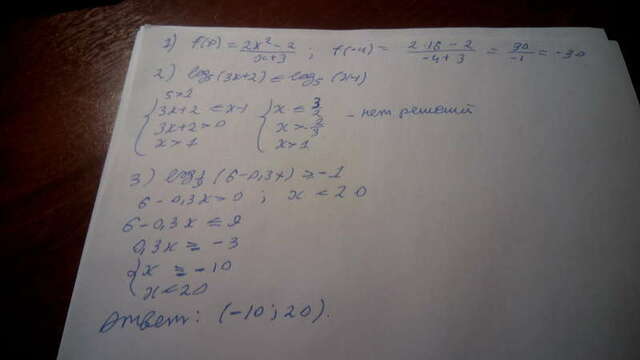 1) f(x) = (2x² - 2)/(x+3) ; f(-4) = (2·16 - 2)/(-4+3) = 30/-1 = -30
2) log₅(3x+2) ≤ log₅(x-1)
5>1
{ 3x+2 ≤ x-1 { x ≤ 3/2 - нет решений
3x+2>0 x>-2/3
x>1 x>1
3) (6-0,3x) ≥ -1
6-0,3x>0 ; x<20
6-0,3x ≤ 9
0,3x ≥ -3
{ x ≥ -10
x<20
Ответ: (-10; 20).